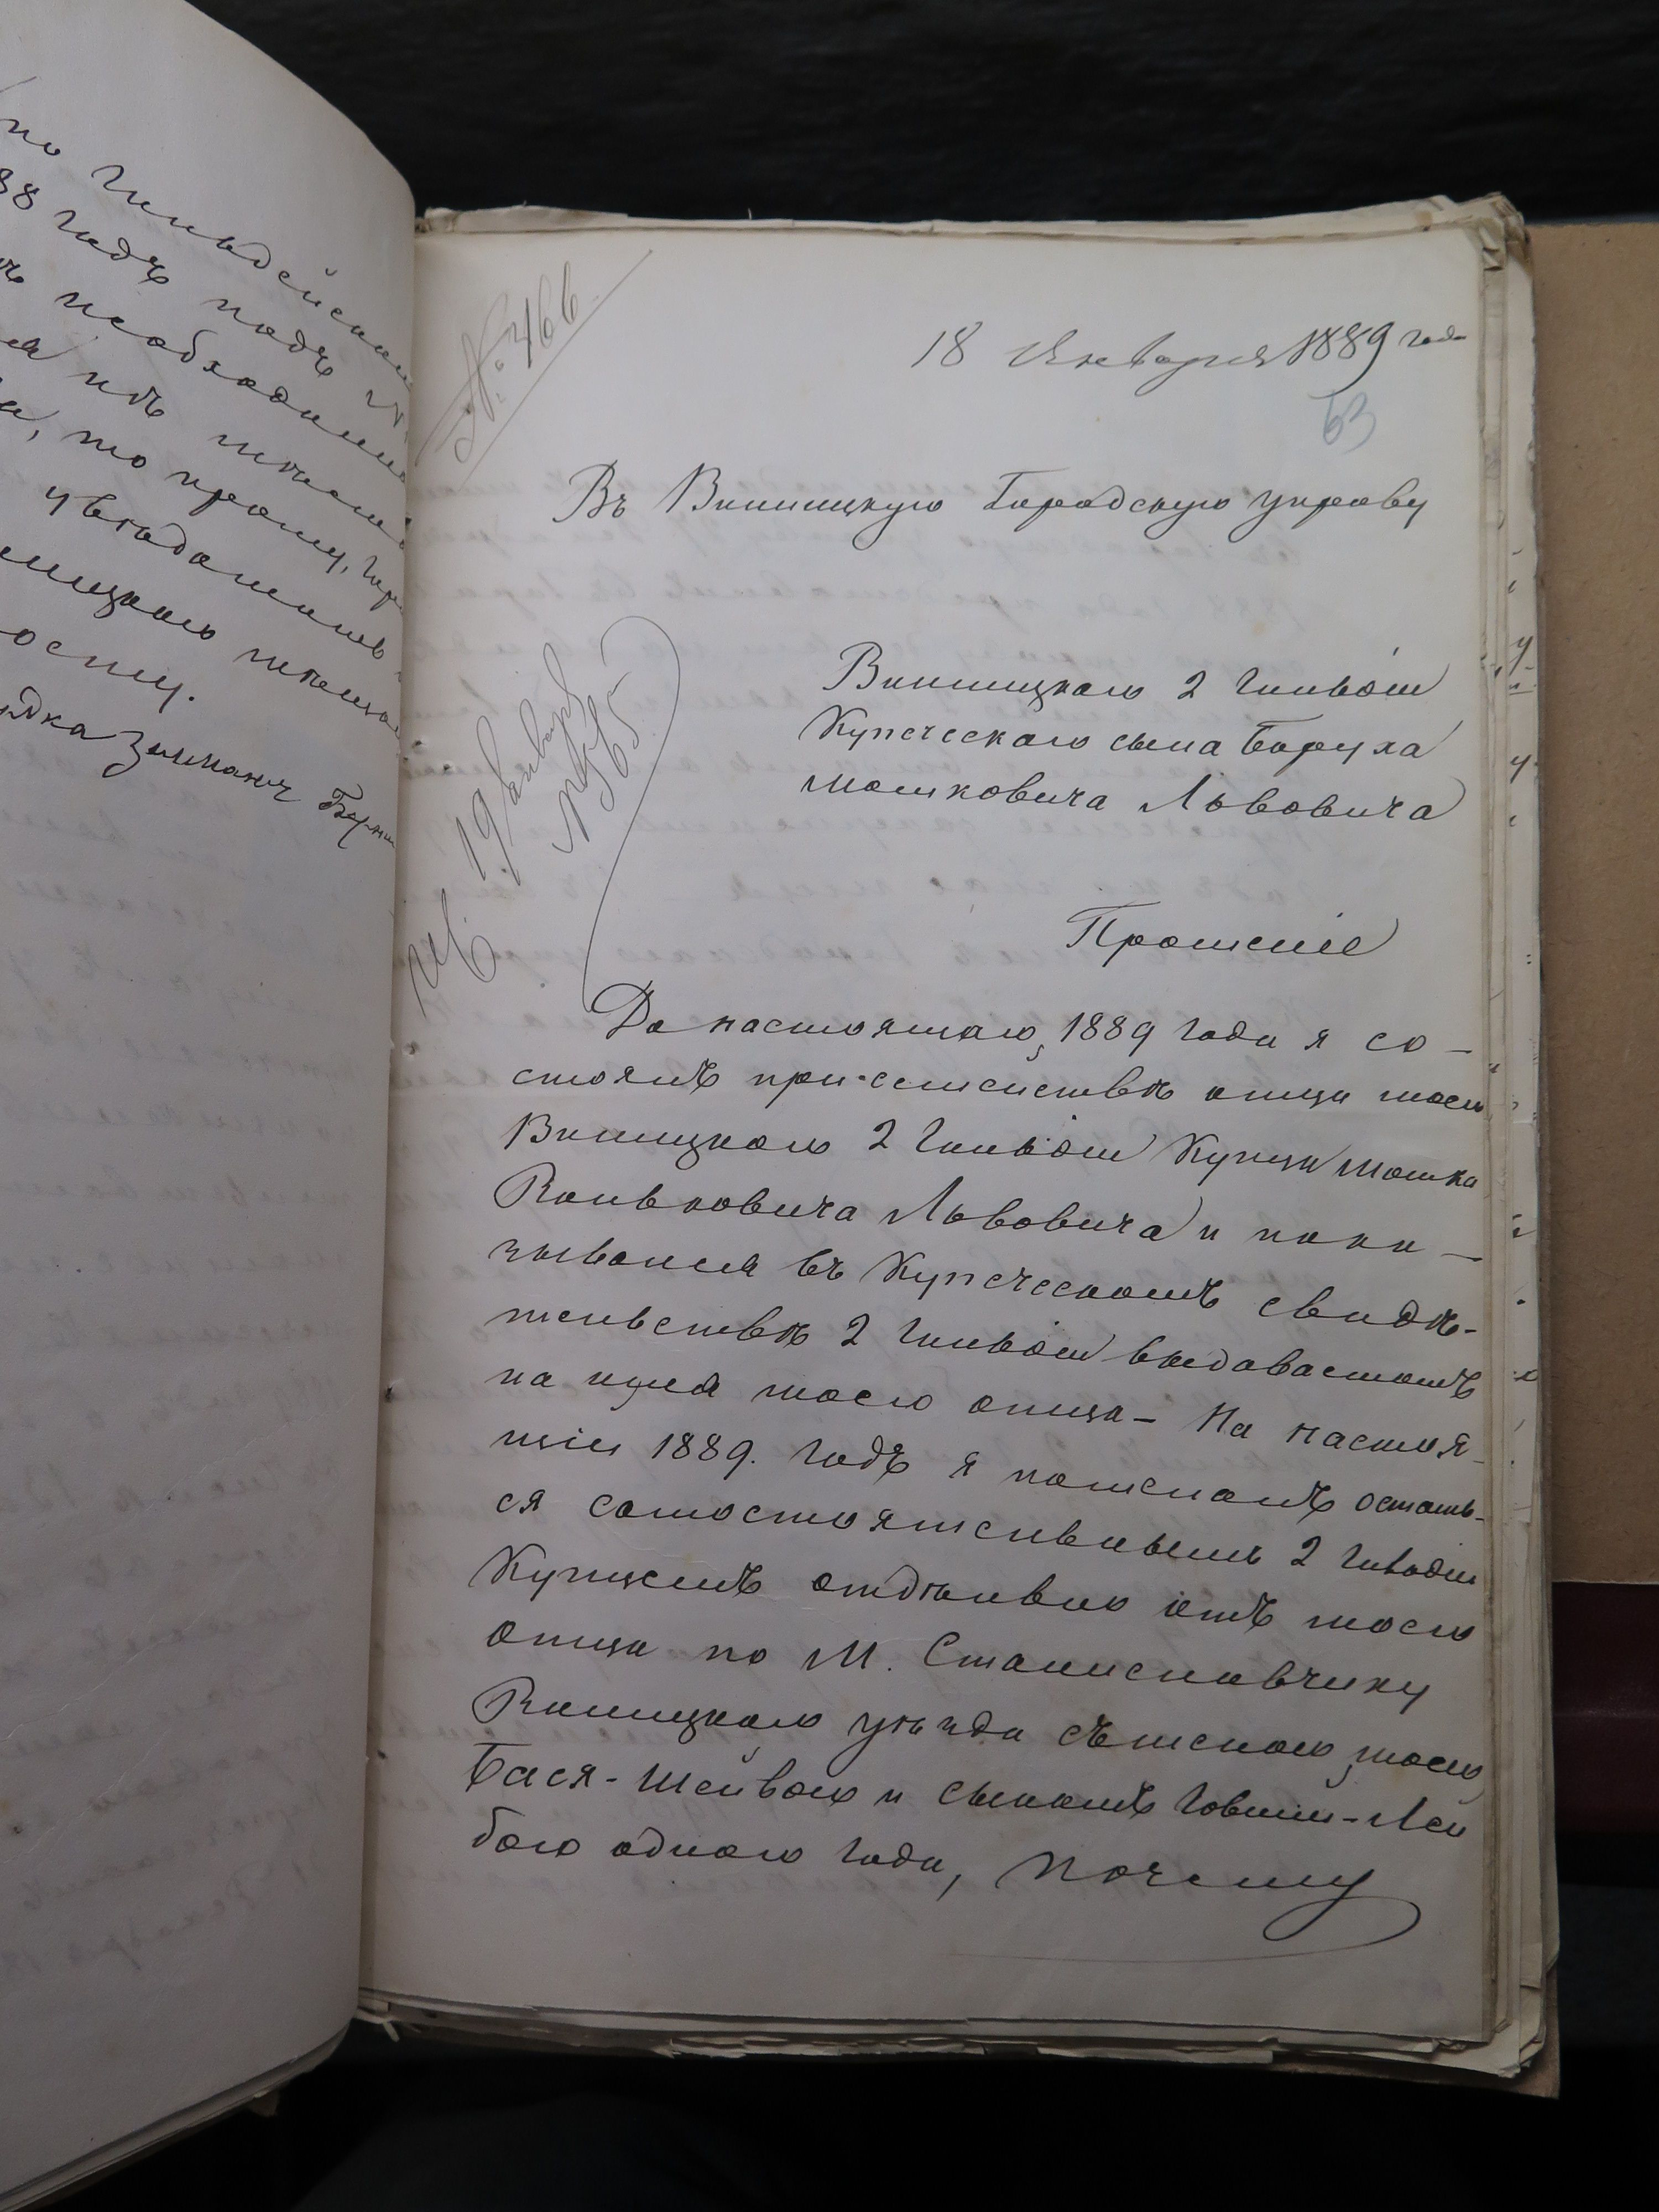 по гильдейском
88 годъ подъ №
необходимо
то прошу, гор
увѣдомить
осту.
Зельманъ Берн
№ 466
18 Января 1889 года
63
Въ Винницкую Городскую управу
19 Января
№ 65
Винницкаго 2 Гильдіи
Купеческаго сына Боруха
Мошковича Львовича
Прошеніе
До настоящаго, 1889 года я со-
стоялъ при семействѣ отца моего
Винницкаго 2 Гильдіи Купца Мошка
Вольковича Львовича и пока-
зывался въ Купеческомъ свидѣ-
тельствѣ 2 Гильдіи выдаваемомъ
на имя моего отца - На настоя-
щій 1889. годъ я пожелалъ остать-
ся самостоятельнымъ 2 Гильдіи
Купцемъ отдѣльно отъ моего
отца по М. Станиславчику
Винницкаго уѣзда съ женою моею
Бася-Шейвою и сыномъ Говшій-Лей
бою одного года, почему